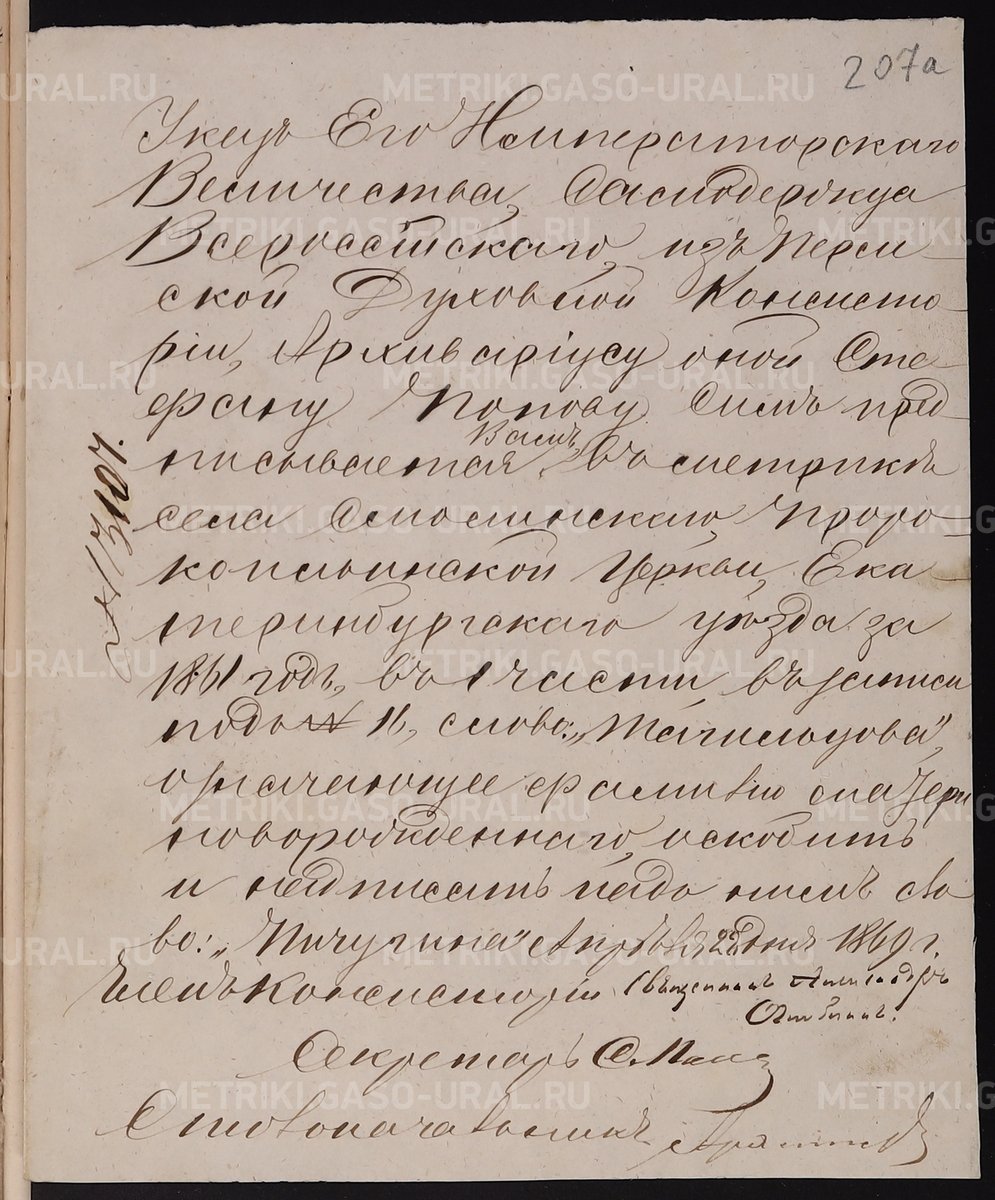 207а
Указъ Его Императорскаго
Величества, Самодержца
Всероссійскаго, изъ Перм-
ской Духовной Консисто-
ріи, Архиваріусу оной Сте-
фану Попову. Симъ пред-
писывается Вамъ, въ метрикѣ
села Смолинскаго, Проро-
коильинской Церкви, Ека-
теринбургскаго уѣзда за
1861 годъ, въ 1 части въ записи
подъ № 11, слово: „Тагильцова",
означающее фамилію матери
новорожденнаго оскобить
и надписать надъ нимъ сло-
во: „Пичугина" Апрѣля 22 дня 1869 г.
Членъ Консисторіи Священникъ Александръ
Секретарь С. Поп
Столоначальникъ
№ 3107.
METRIKI.GASO-URAL.RU